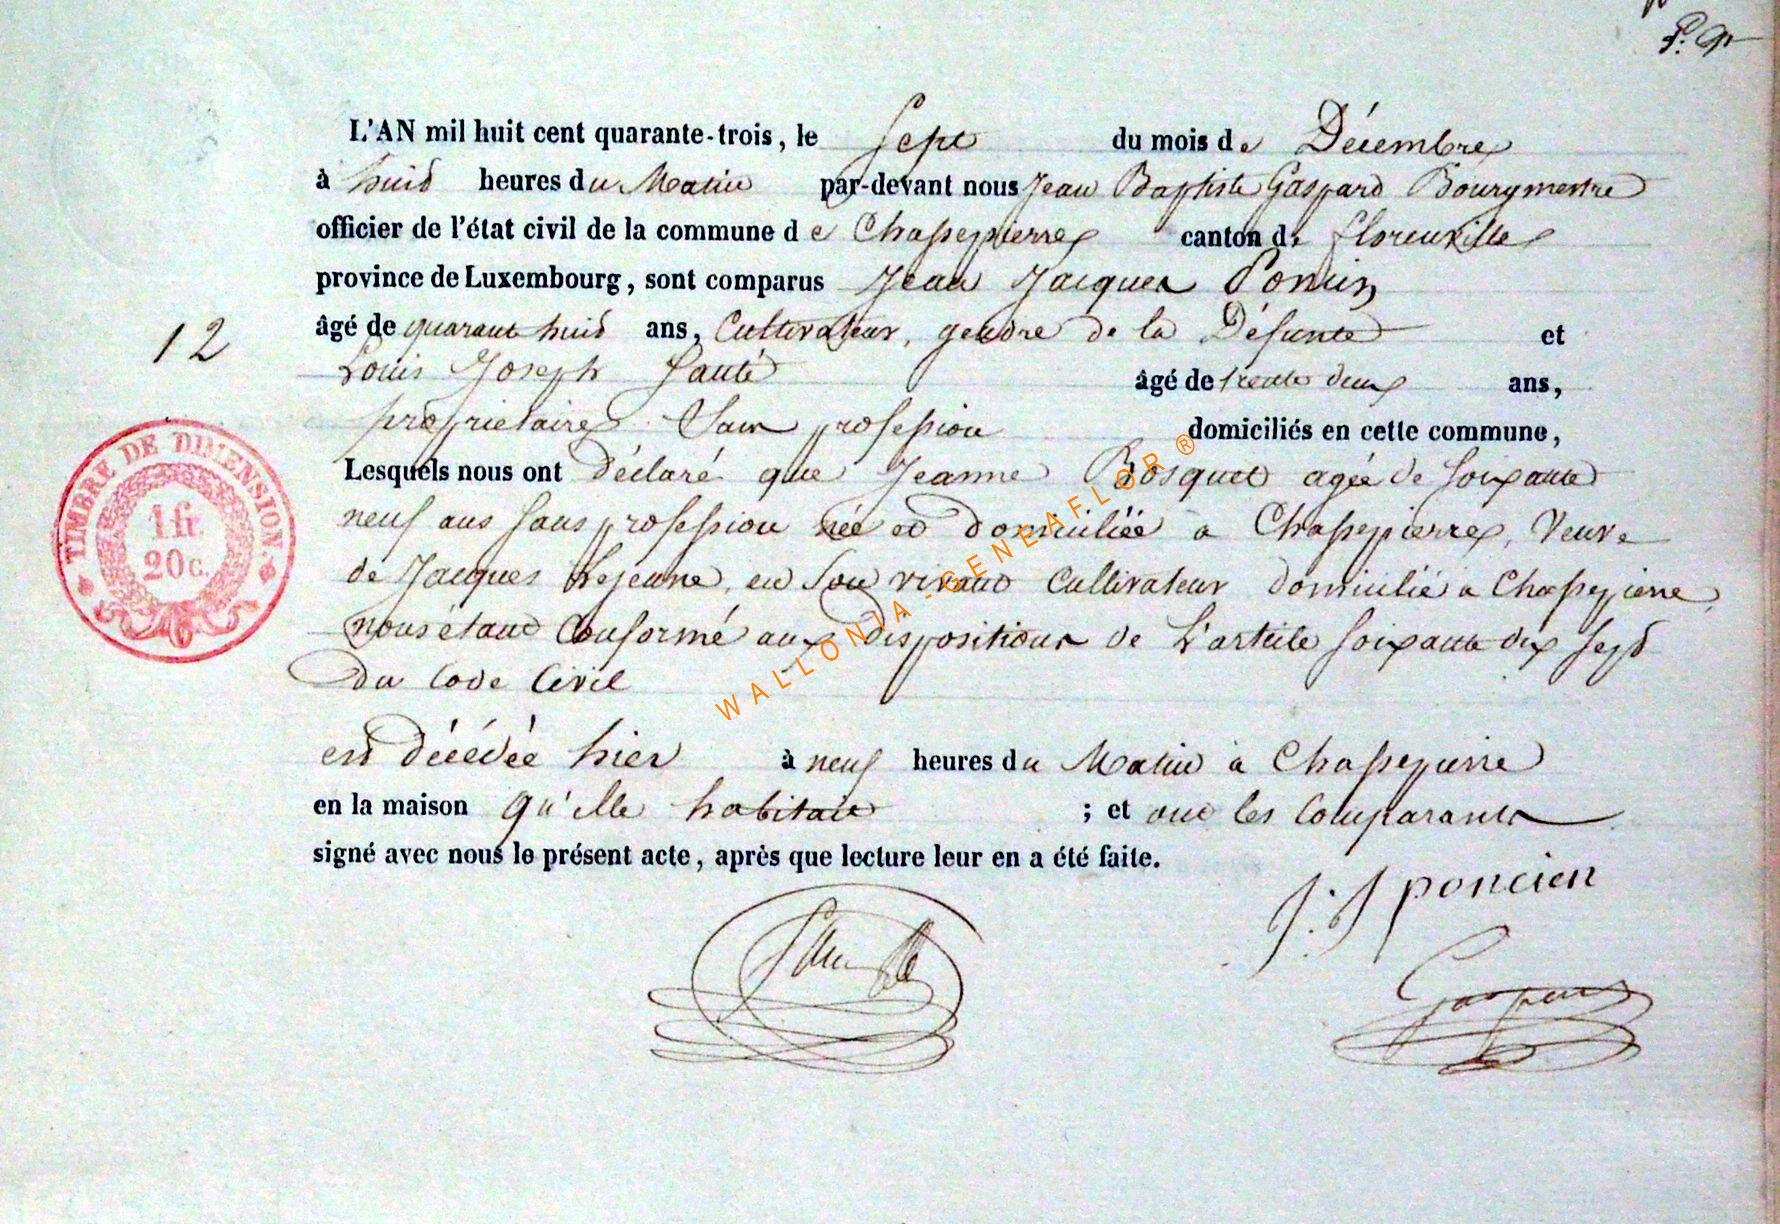 P. G
L'AN mil huit cent quarante-trois, le Sept du mois de Décembre
à huit heures du Matin par-devant nous Jean Baptiste Gaspard Bourgmestre
officier de l'état civil de la commune de Chassepierre canton de florenville
province de Luxembourg, sont comparus Jean Jacques Poncin
12
âgé de quarante huit ans, Cultivateur, gendre de la Défunte et
Louis Joseph Santé âgé de trente deux ans,
propriétaire Sans profession domiciliés en cette commune,
Lesquels nous ont déclaré que Jeanne Bosquet agée de soixante
neuf ans sans profession née et domiciliée à Chassepierre, Veuve
de Jacques Lejeune, en son vivant Cultivateur domicilié a Chassepierre,
nous étant Conformé aux dispositions de L'article soixante dix sept
du Code Civil
est décédée hier à neuf heures du Matin à Chassepierre
en la maison qu'elle habitait ; et ont les Comparants
signé avec nous le présent acte, après que lecture leur en a été faite.
J. J poncien
Gaspard
TIMBRE DE DIMENSION.
1 fr.
20 c.
WALLONIA-GENEAFLOR ®